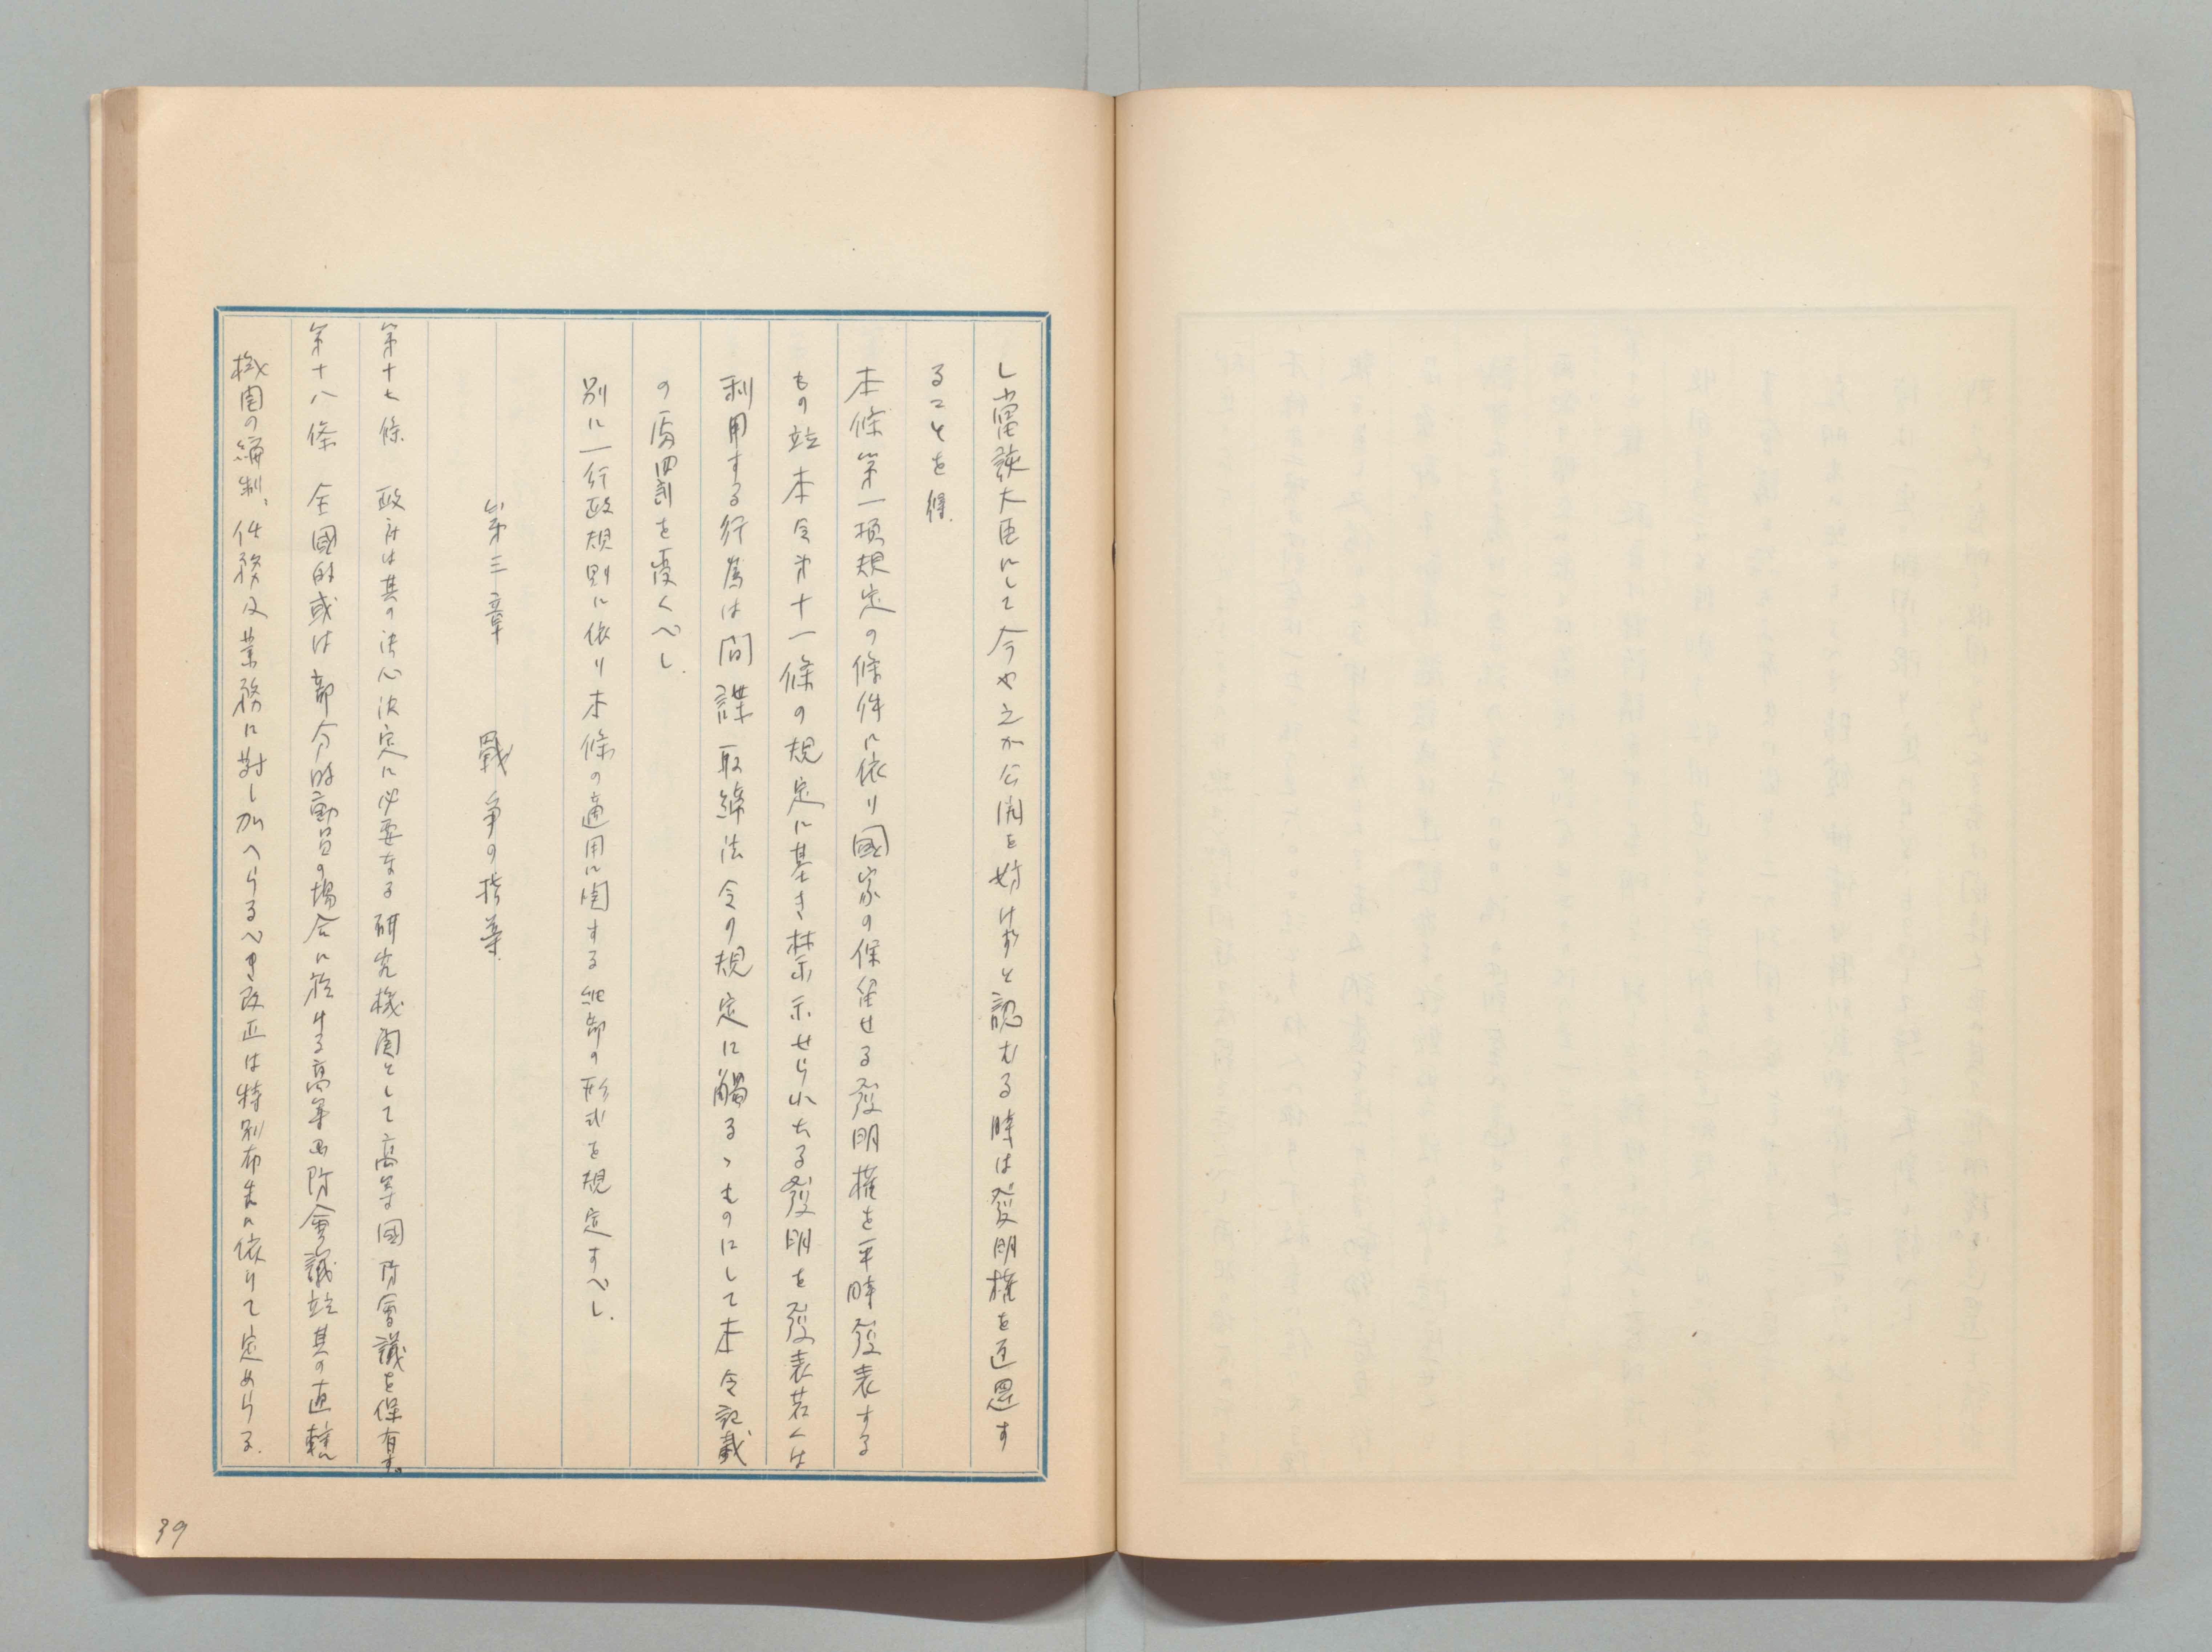 し當該大臣にして今や之か公開を妨けすと認むる時は發明權を返還す
ることを得.
本條第一項規定の條件に依り國家の保留せる發明權を平時發表する
もの竝本令第十一條の規定に基き禁示せられたる發明を發表若くは
利用する行爲は間諜取締法令の規定に觸るゝものにして本令記載
の處罰を受くへし.
別に一行政規則に依り本條の適用に関する細部の形式を規定すへし.
第三章 戰爭の指導.
第十七條 政府は其の決心決定に必要なる研究機関として高等國防會議を保有す。
第十八條 全國的或は部分的動員の場合に於ける高等國防會議竝其の直轄
機関の編制、任務及業務に對し加へらるへき改正は特別布告に依りて定めらる.
39